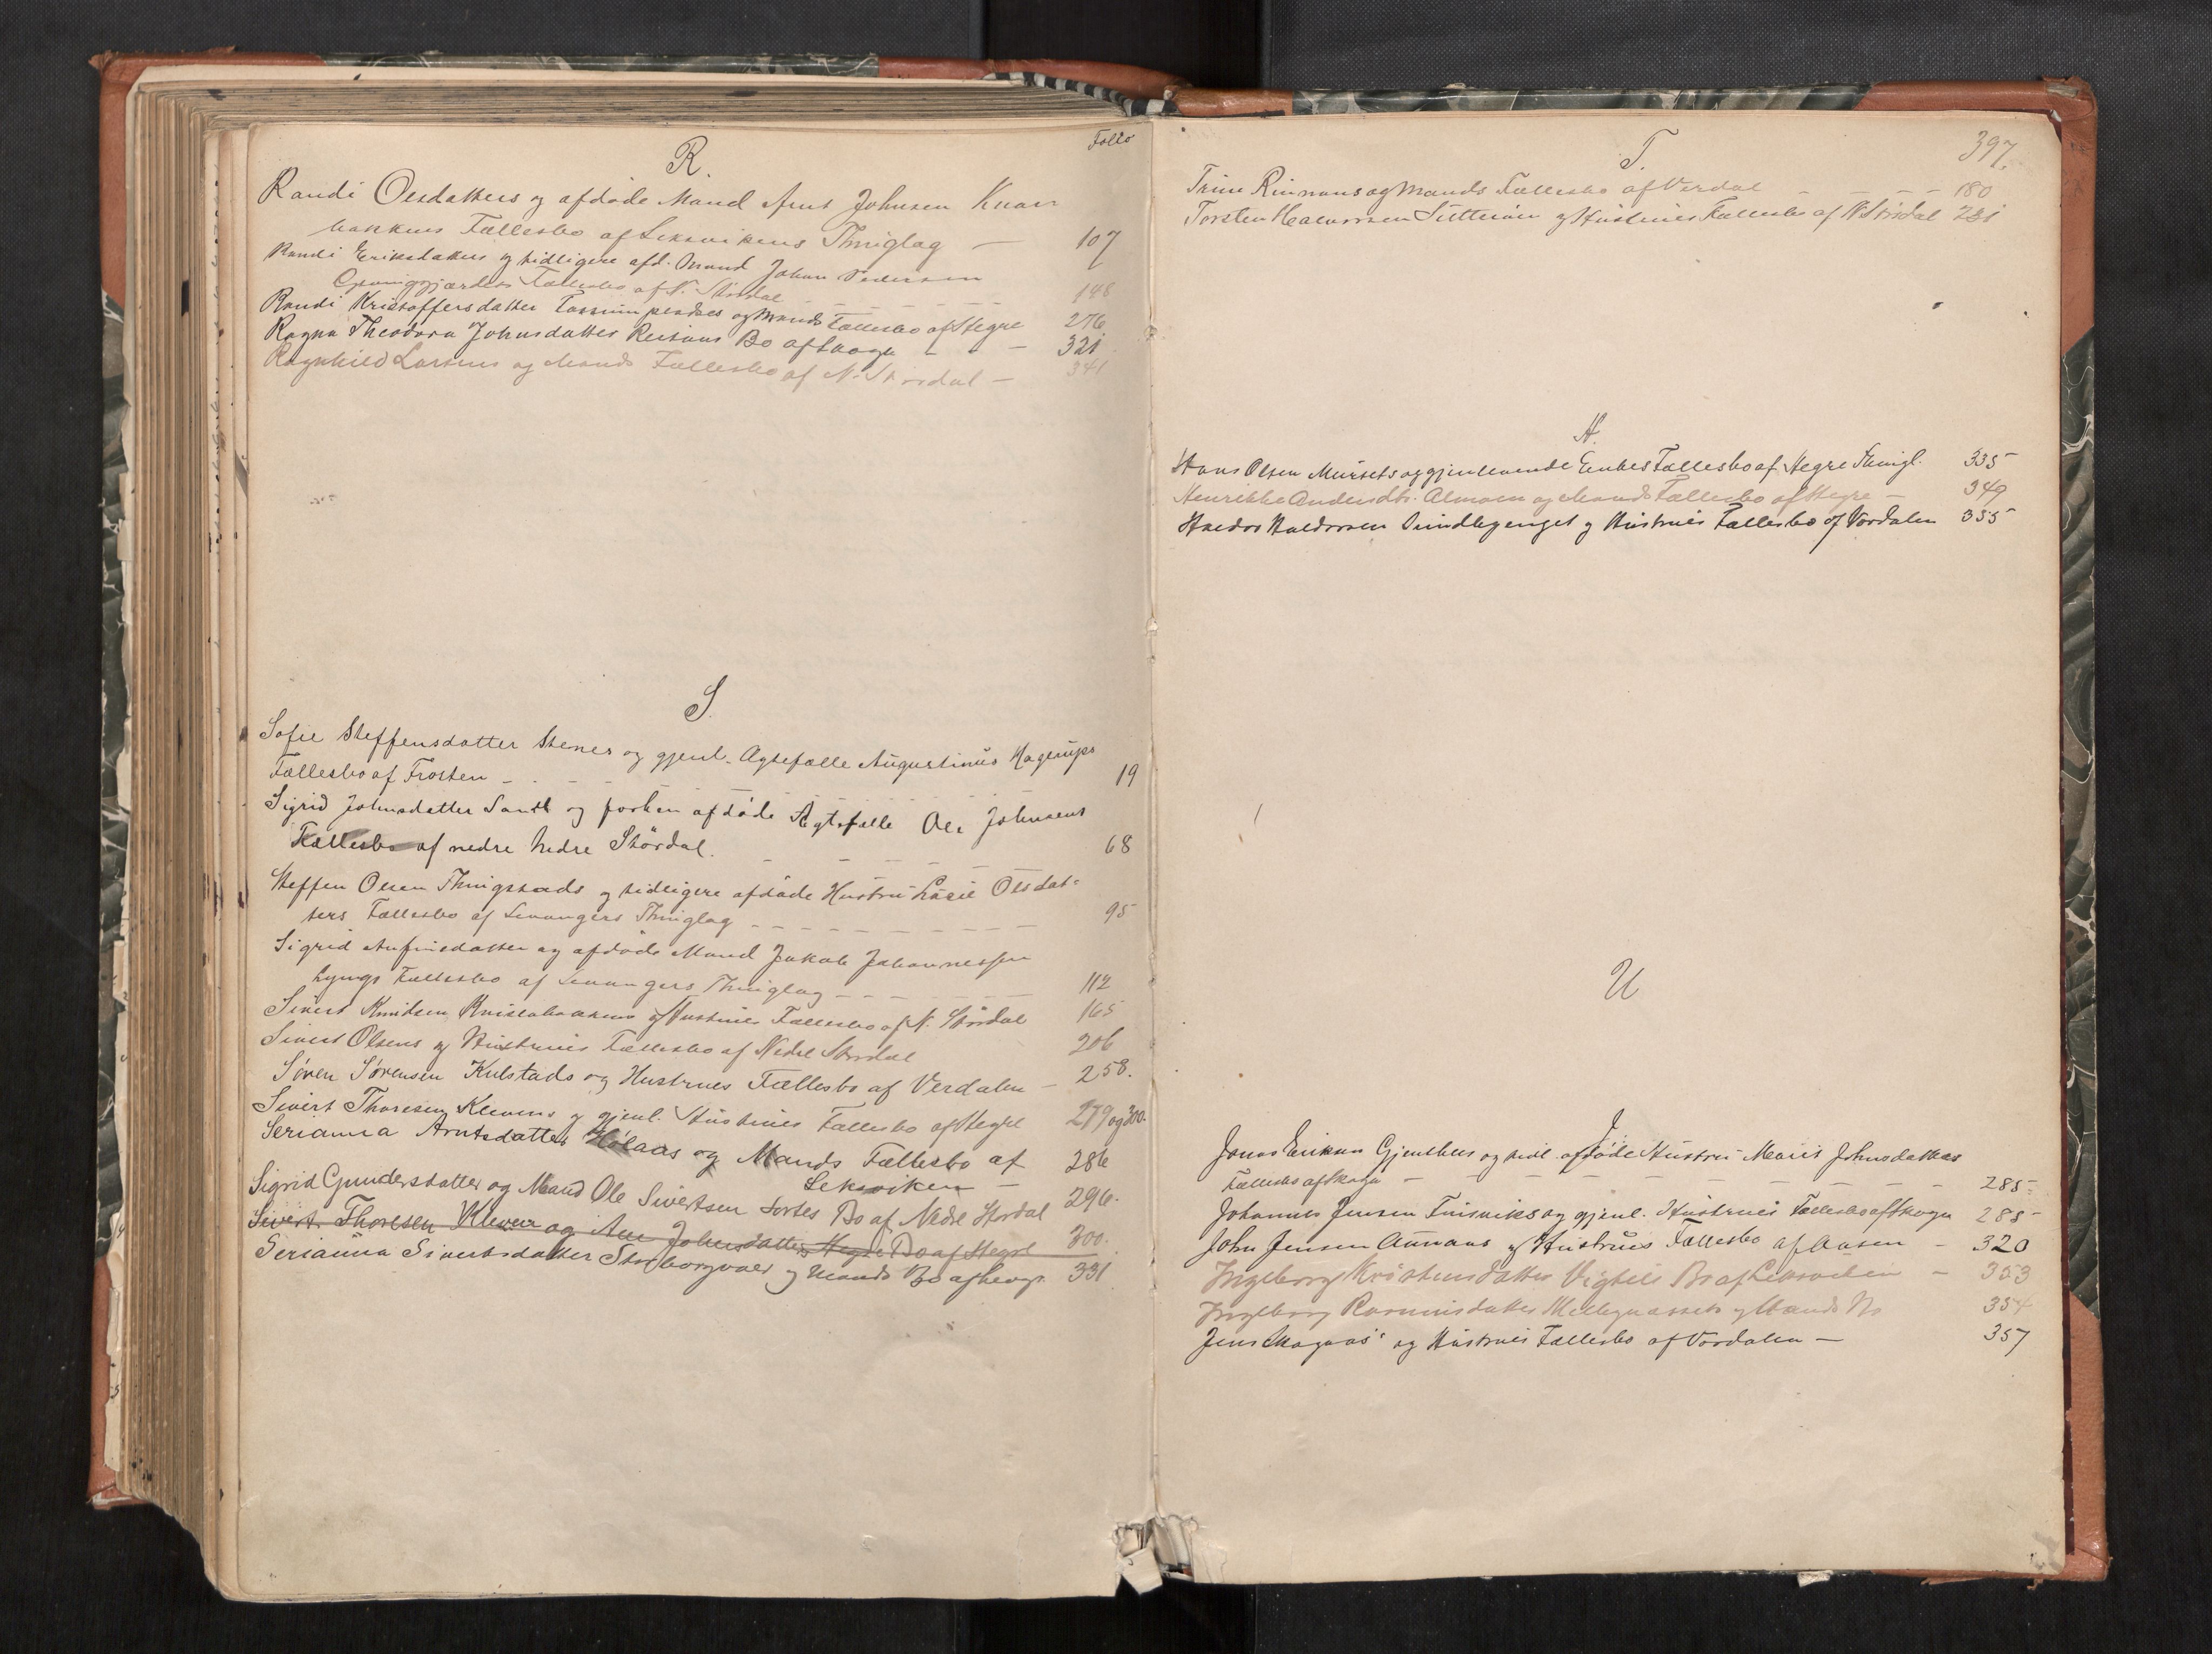 Folio
R.
Randi Olsdatters og afdøde Mand Arnt Johnsen Knar
bakkens Fællesbo af Leksvikens Thinglag — 107
Randi Eriksdatters og tidligere afd. Mand Johan Pedersen
Fællesbo af N. Stördal 148
Randi Kristoffersdatter og Mands Fællesbo af Hegre 276
Ragna Theodora Johnsdatter Reitans Bo af Skogn - - — 321
Ragnhild Larsens og Mands Fællesbo af N. Stördal — 341
S.
Sofie Steffensdatter Stenes og gjenl. Agtefælle Augustinus Hagerups
Fællesbo af Frosten - - - - 19
Sigrid Johnsdatter Sandt og forhen afdöde Ægtefælle Ole Johnsens
Fællesbo af nedre Nedre Stördal. 68
Steffen Olsen Thingstads og tidligere afdöde Hustru Lasie Olsdat=
ters Fællesbo af Levangers Thinglag 95
Sigrid Anfinsdatter og afdöde Mand Jakob Johannessen
Lyngs Fællesbo af Levangers Thinglag 112
Sivert Knudsen og Hustrues Fællesbo af N. Stördal 165
Sivert Olsens og Hustrues Fællesbo af Nedre Stordal 206
Søren Sørensen Kulstads og Hustrues Fællesbo af Verdalen — 258.
Sivert Thoresen Klevens og gjenl. Hustrues Fællesbo af Hegre 279 og 300.
Serianna Arntsdatter Hølaas og Mands Fællesbo af 286
Leksviken —
Sigrid Gundersdatter og Mand Ole Sivertsen Sortes Bo af Nedre Stordal 296.
Sivert Thoresen Kleven og Ane Johnsdatter Hegre Bo af Hegre 300.
Serianna Sivertsdatter Storborgvold og Mands Bo af Levgr. 331
397.
T.
Trine Rinnans og Mands Fællesbo af Verdal - - - - 180
Torsten Halvorsen og Hustrues Fællesbo af N. Stördal 231
H.
Hans Olsen Mursets og gjenlevende Enkes Fællesbo af Hegre Thingl. 335
Henrikke Andersdtr. Almoen og Mands Fællesbo af Hegre — 349
Haldor Haldorsen og Hustrues Fællesbo af Værdalen 355
U
J.
Jonas Eriksen og tidl. afdøde Hustru Marit Johnsdatters
Fællesbo af Skogn — 285
Johannes Jensen Finsviks og gjenl. Hustrues Fællesbo af Skogn 285
John Jensen Aunans og Hustrues Fællesbo af Aasen — 320
Ingeborg Kristensdatter Vigtils Bo af Leksviken — 353
Ingeborg Rasmusdatter og Mands Bo 354
Jens og Hustrues Fællesbo af Værdalen — 357